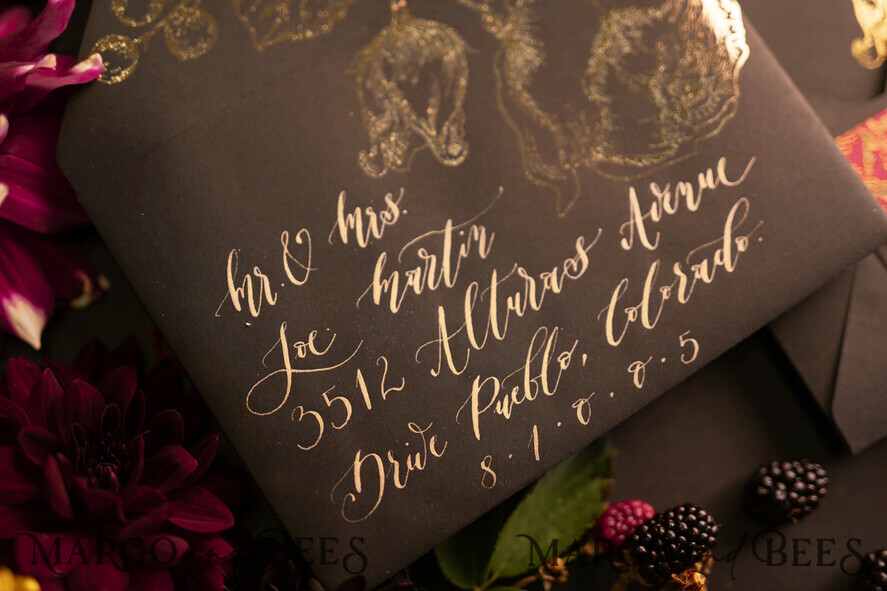 Mr. & Mrs.
Joe Martin
3512 Alturas Avenue
Drive Pueblo, Colorado.
8.1.0.0.5
MARGO and BEES
MARGO and BEES